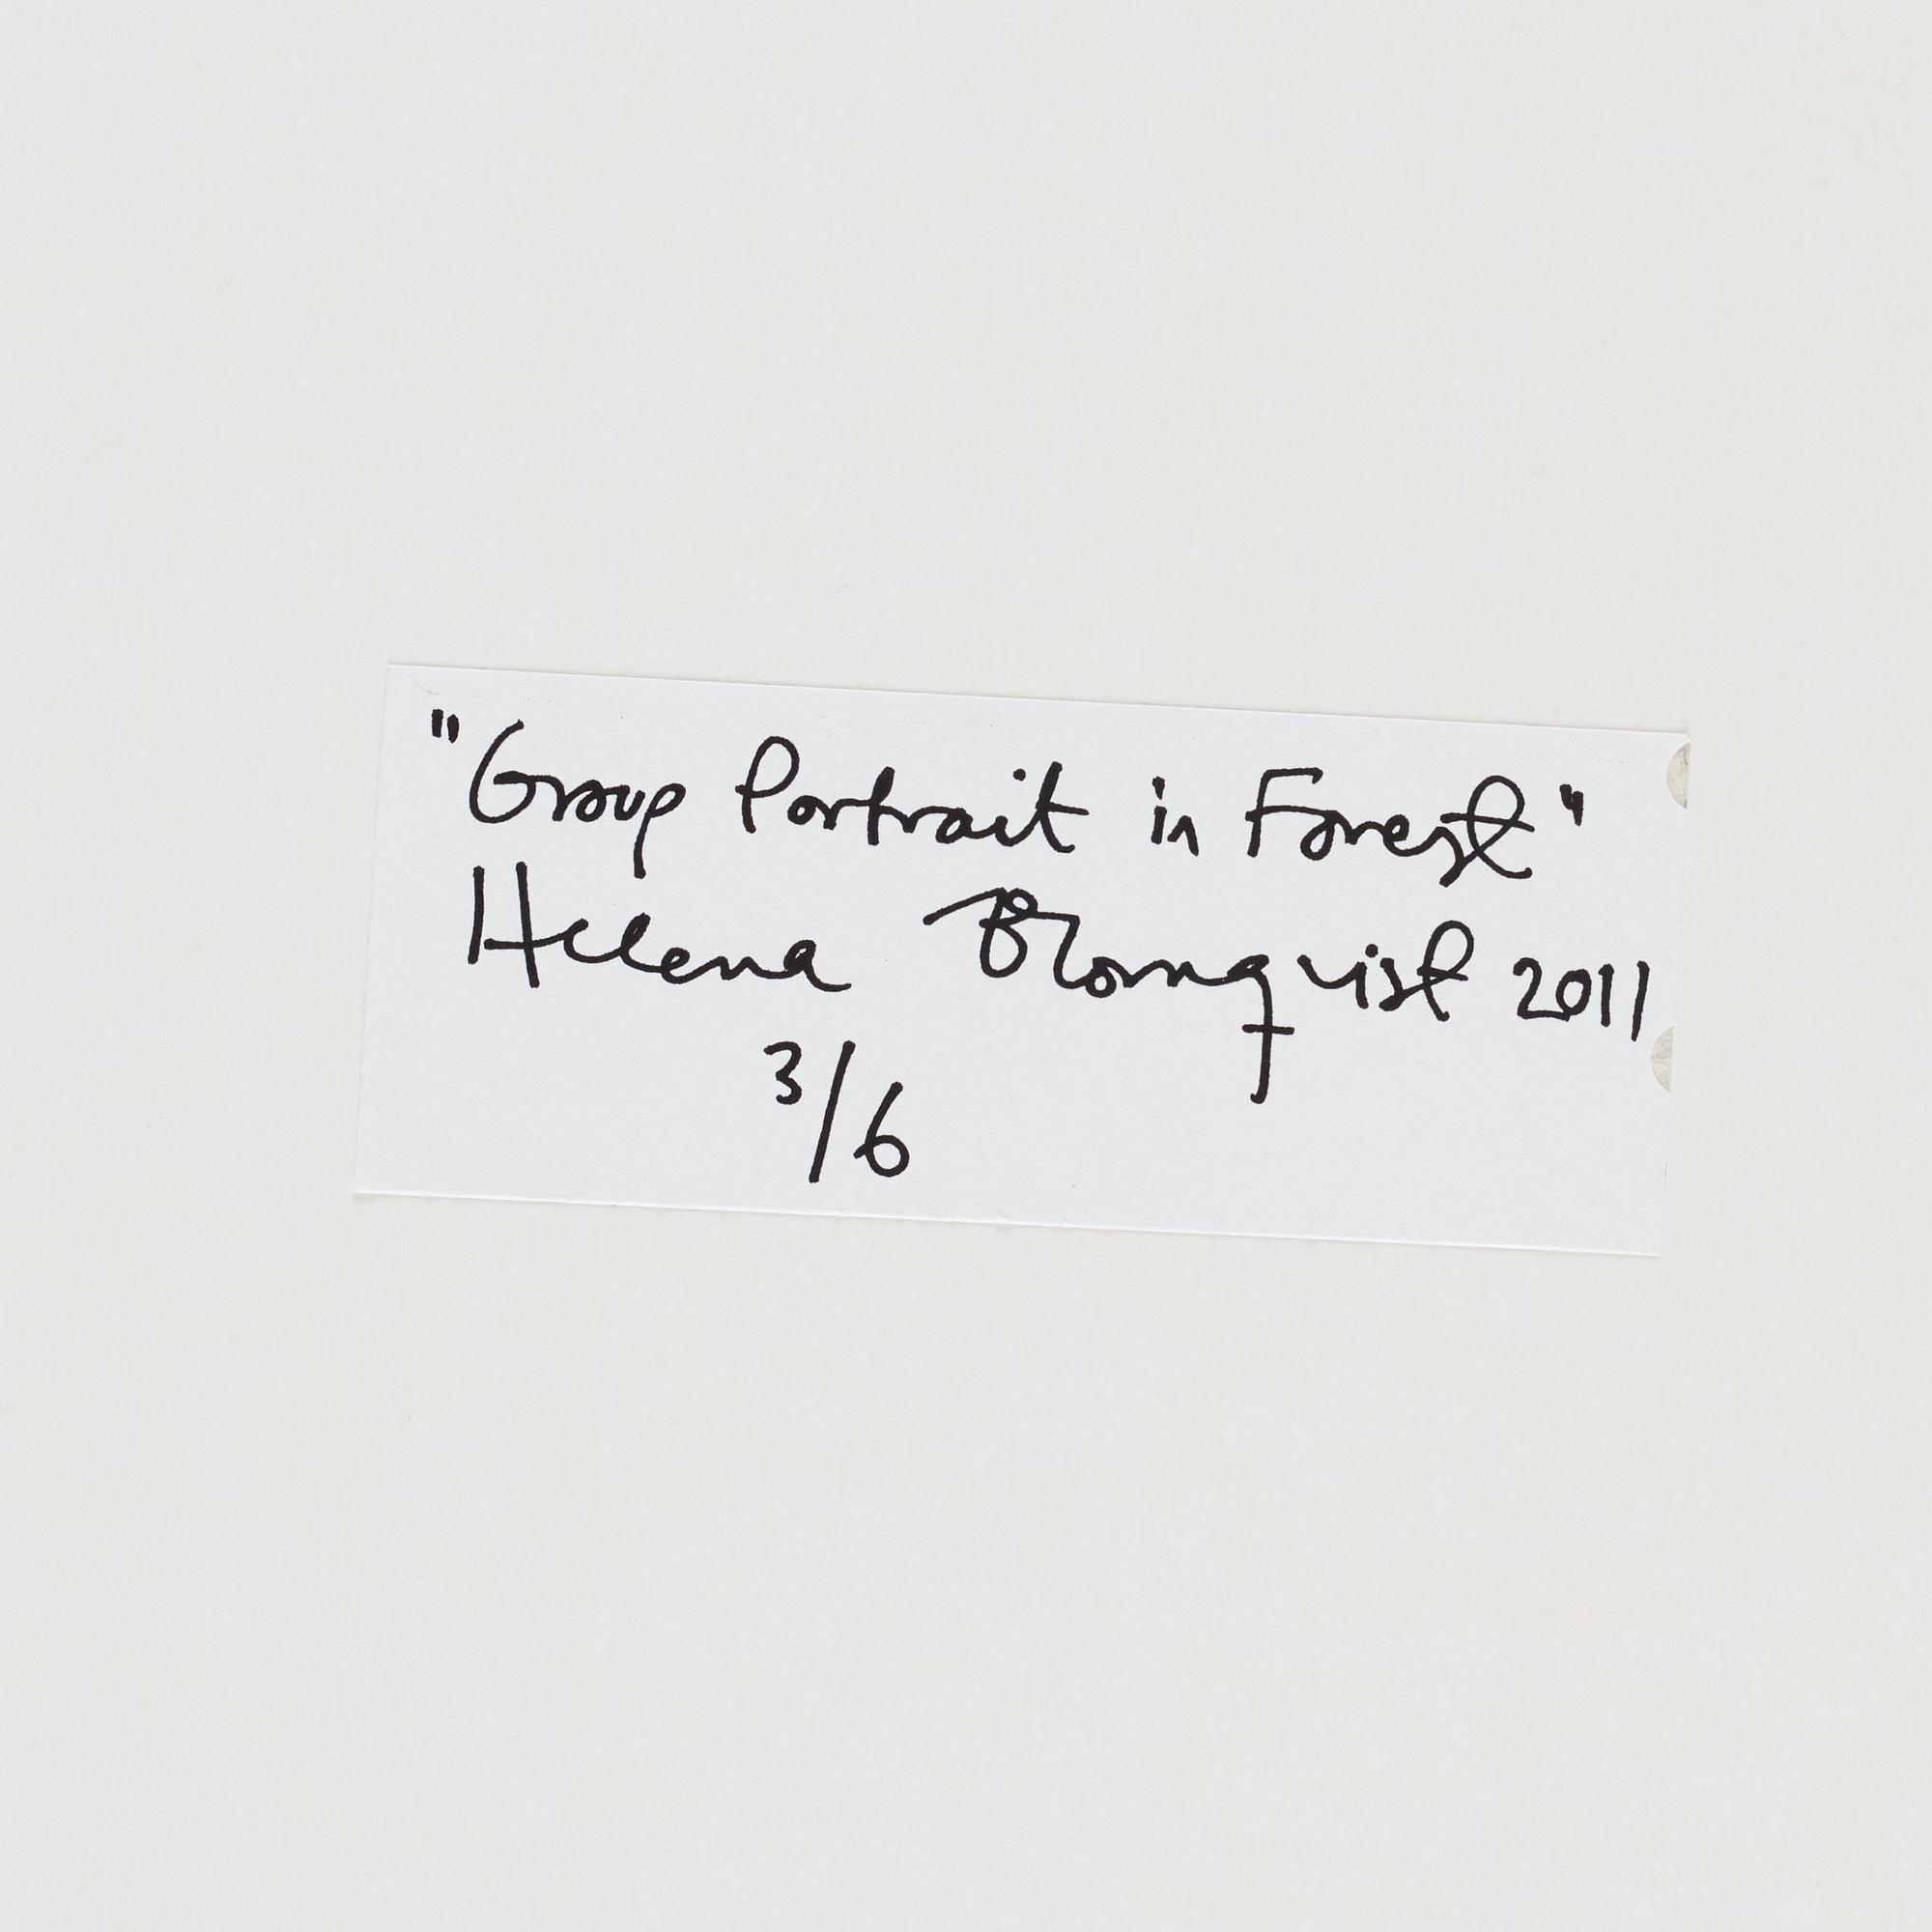 "Group Portrait in Forest"
Helena Blomqvist 2011
3/6